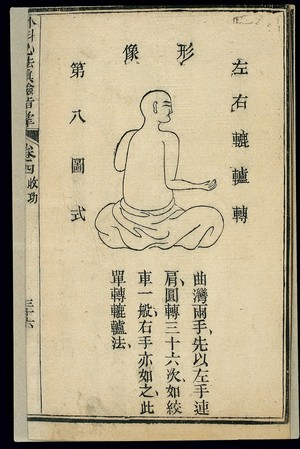 左右轆轤轉
形像
第八圖式
曲灣兩手、先以左手連
肩圓轉三十六次、如絞
車一般、右手亦如之、此
單轉轆轤法、
外科心法真驗指掌
卷四 收功
三十六